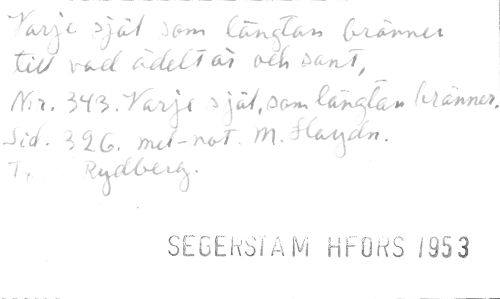 Varje själ som längtan bränner
till vad ädelt är och sant,
Nr. 343. Varje själ, som längtan bränner.
Sid. 326. mel-not. M. Haydn.
T. Rydberg.
SEGERSTAM HFORS 1953